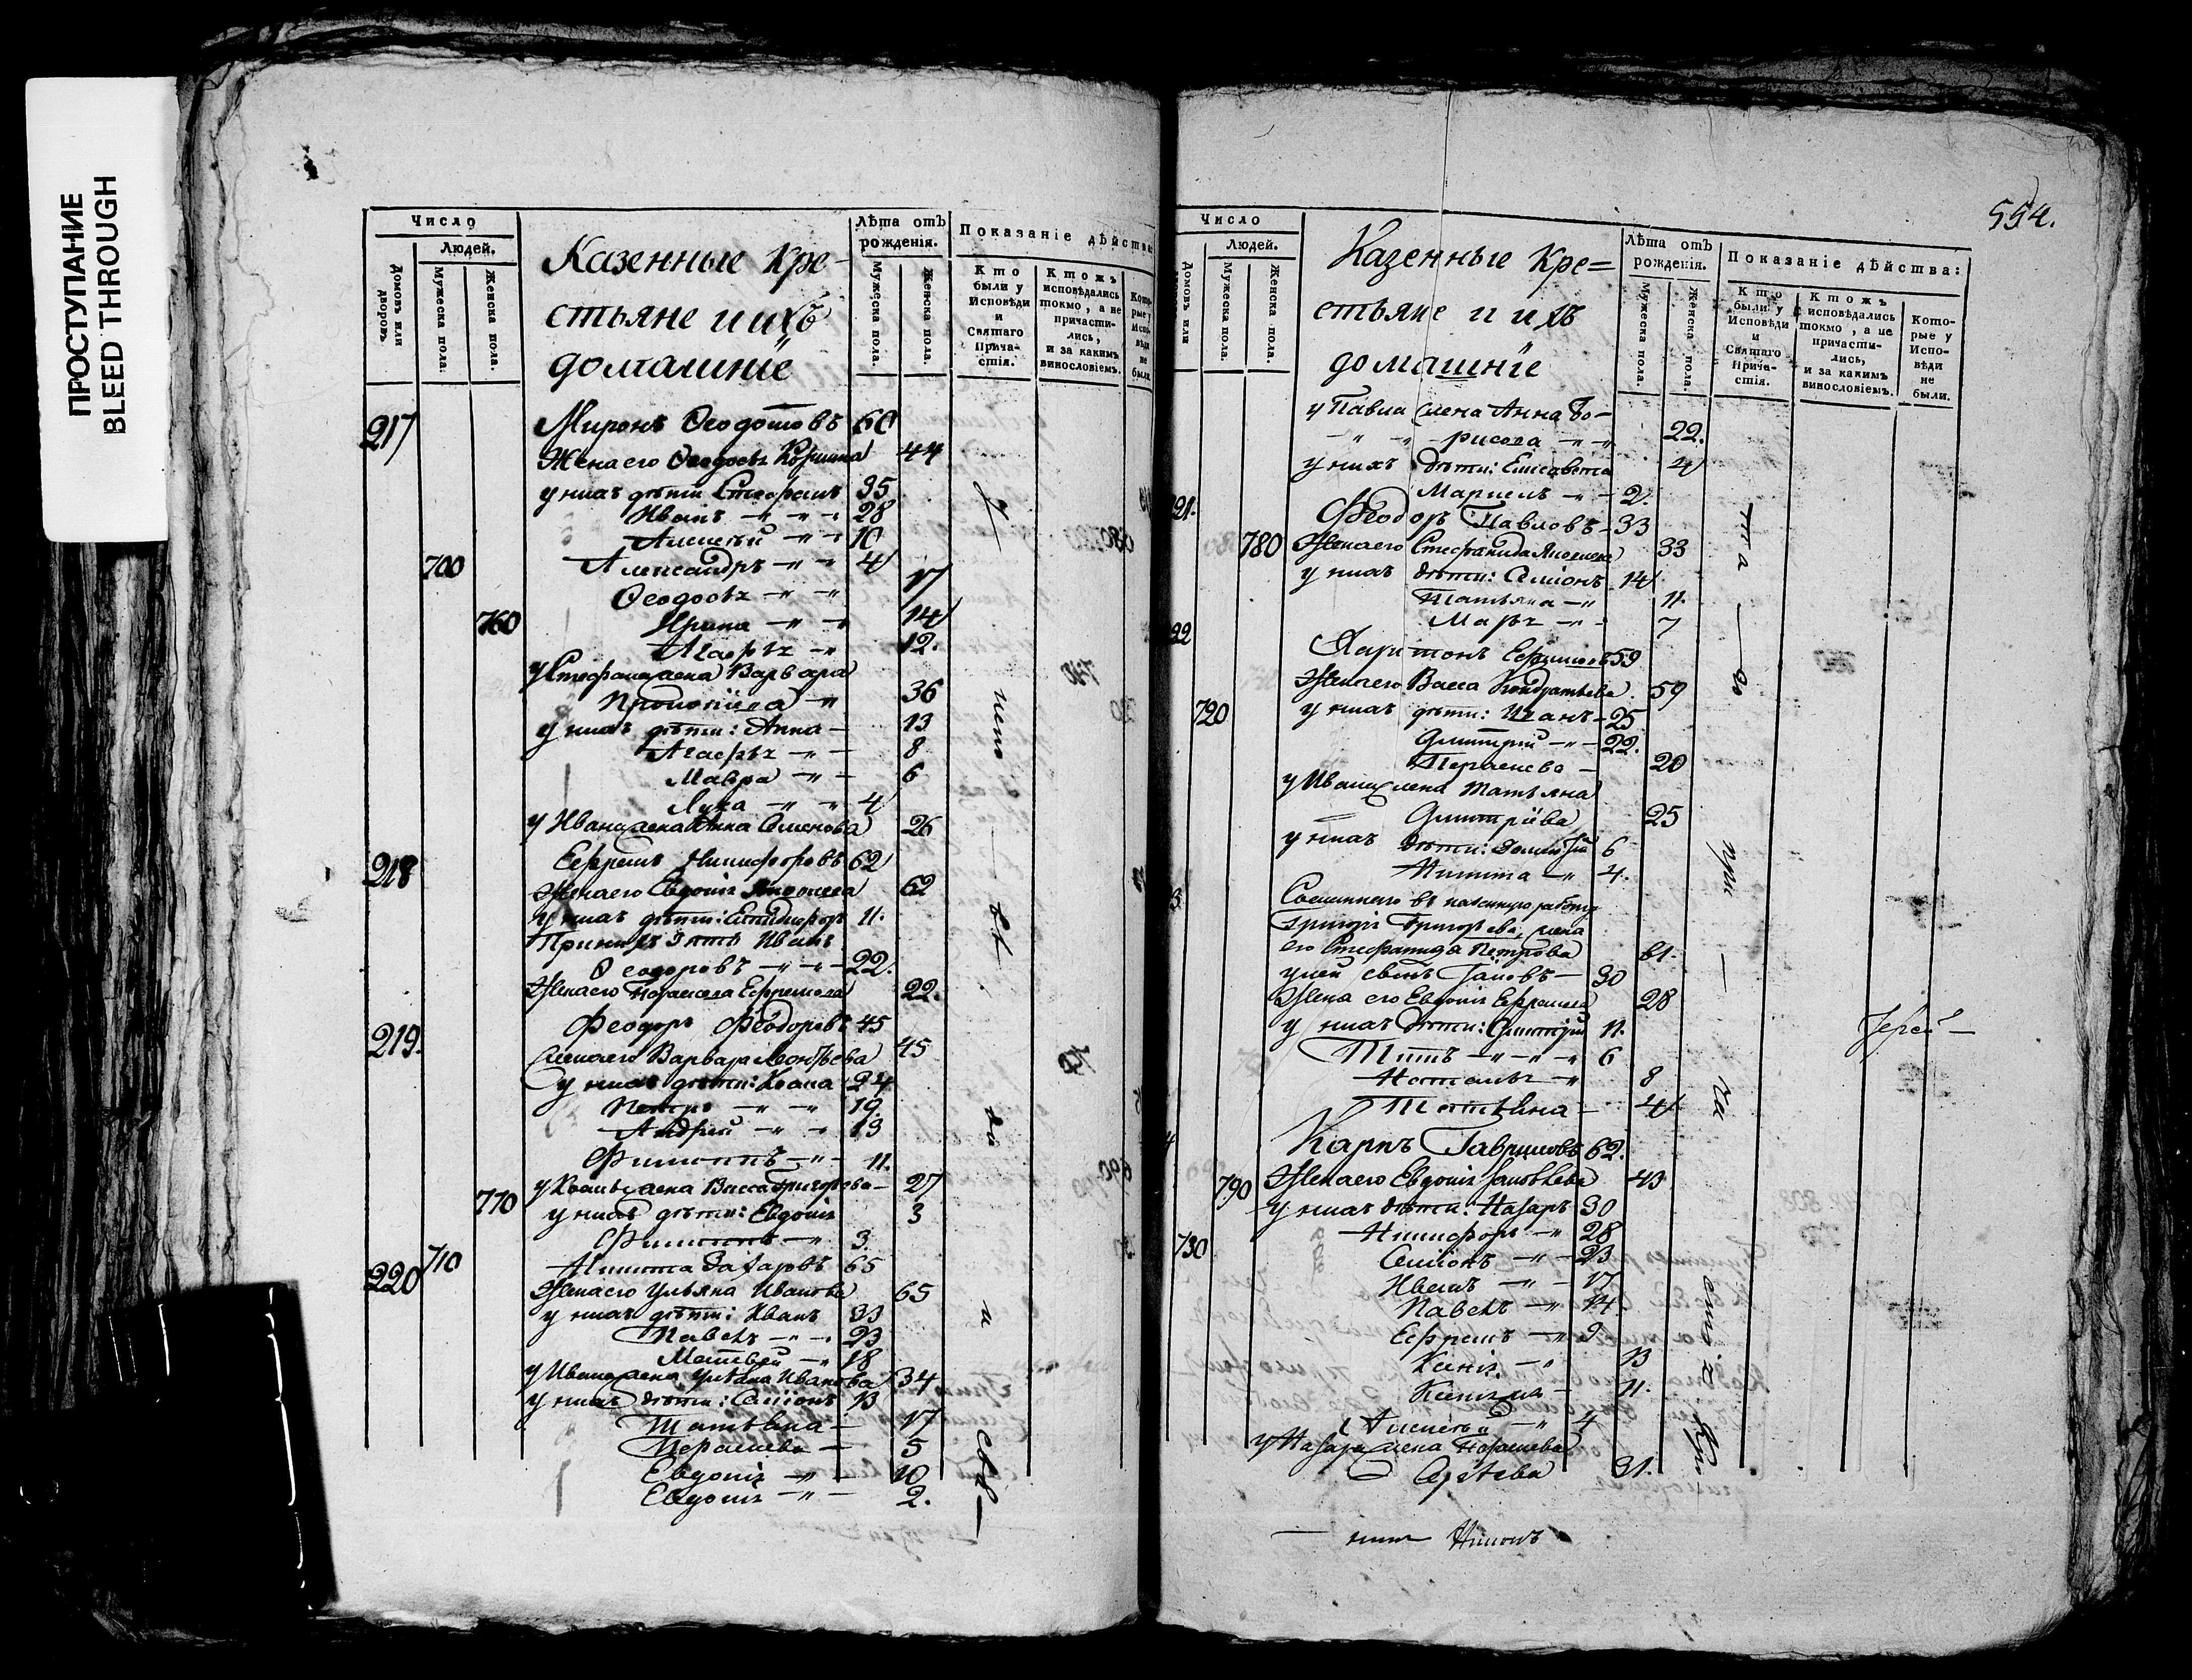 ПРОСТУПАНИЕ
BLEED THROUGH
Число
Людей.
Домовъ или дворовъ.
Мужеска пола.
Женска пола.
Лѣта отъ рожденія.
Мужеска пола.
Женска пола.
Показаніе дѣйства:
Кто были у Исповѣди и Святаго Причастія.
Ктожъ исповѣдались токмо, а не причастились, и за какимъ винословіемъ.
Которые у Исповѣди не были.
Казенные Кре-
стьяне и ихъ
домашніе
217 Миронъ Ѳеодотовъ 60
Жена его Ѳеодосья 44
у нихъ дѣти Стефанъ 35
Иванъ 28
Алексѣй 10
700 Александръ 4
Ѳеодосья 17
760 Ирина 14
Агафья 12.
у Стефана жена Варвара
Прокопіева 36
у нихъ дѣти: Анна 13
Агафья 8
Мавра 6
Лука 4
у Ивана жена Анна Семенова 26
218 Ефремъ Никифоровъ 62
Жена его Евдокія 62
у нихъ дѣти: 11.
Иванъ
Ѳеодоровъ 22.
Жена его Ефремова 22.
219. Феодоръ Феодоровъ 45
Жена его Варвара Леонтьева 45
у нихъ дѣти: 24
Петръ 19
Андрей 13
Филиппъ 11.
жена Васса Григорьева 27
770 у нихъ дѣти: Евдокія 3
Филиппъ 3.
220 710 Никита Захаровъ 65
Жена его Ульяна Иванова 65
у нихъ дѣти: Иванъ 33
Павелъ 23
Матвей 18
у Ивана жена Ульяна Иванова 34
у нихъ дѣти: Семіонъ 13
Татьяна 17
Парасковья 5
Евдокія 10
Евдокія 2.
554.
Число
Людей.
Домовъ или
Мужеска пола.
Женска пола.
Лѣта отъ рожденія.
Мужеска пола.
Женска пола.
Показаніе дѣйства:
Кто были у Исповѣди и Святаго Причастія.
Ктожъ исповѣдались токмо, а не причастились, и за какимъ винословіемъ.
Которые у Исповѣди не были.
Казенные Кре=
стьяне и ихъ
домашніе
у Павла жена Анна Бо-
рисова 22.
у нихъ дѣти: Елисавета 4
2.
21. Феодоръ Павловъ 33
780 Жена его Стефанида 33
у нихъ дѣти: Семіонъ 14
Татьяна 11.
Марья 7
22 Харитонъ Ефимовъ 59
Жена его Васса Кондратьева 59
720 у нихъ дѣти: Иванъ 25
Дмитрій 22.
20
у Ивана жена Татьяна
Дмитріева 25
у нихъ дѣти: 6
Никита 4.
въ казенную работу
Григорія Григорьева, жена
его Стефанида Петрова 61.
у ней сынъ Іаковъ 30
Жена его Евдокія Ефремова 28
у нихъ дѣти: Дмитрій 11.
Титъ 6
Наталья 8
Татьяна 4
Карпъ Гавриловъ 62.
790 Жена его Евдокія Іаковлева 43
у нихъ дѣти: Назаръ 30
Никифоръ 28
730 Семіонъ 23
Иванъ 17
Павелъ 14.
Ефремъ 9
Ксенія 13
11.
Алексѣй 4
у Назара жена
Сергѣева 31.
Іерей
Никонъ